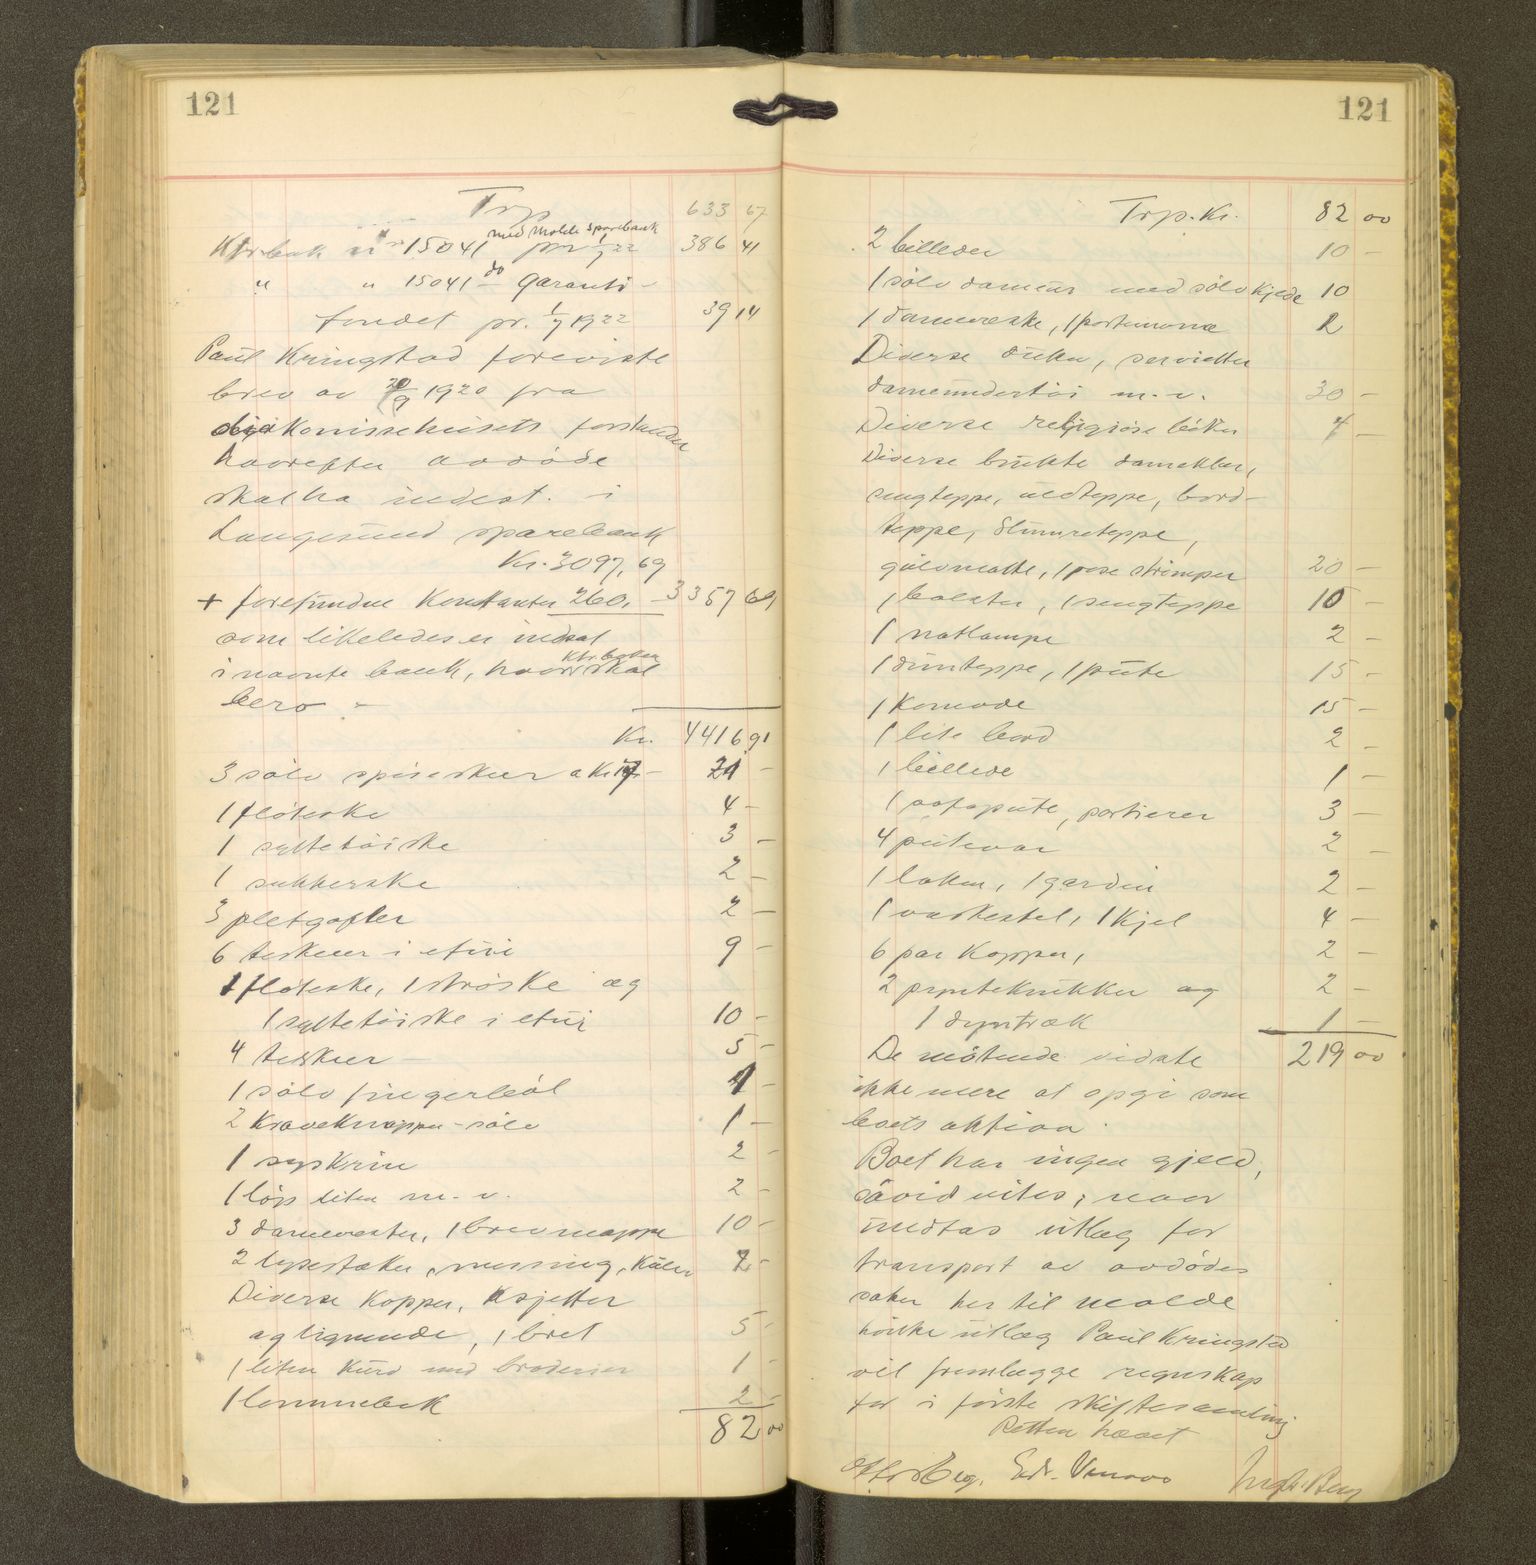 121
Trp 633 67
Ktrbok nr 15041 med Molde Sparebank pr 1/7 22 386 41
" " 15041 do garanti-
fondet pr. 1/7 1922 39 14
Paul Kringstad foreviste
brev av 20/9 1920 fra
diakonissehusets forstander
hvorefter avdøde
skal ha indest. i
Langesund sparebank
Kr. 3097,69
+ forefundne Kontanter 260,- 3357 69
som likeledes er indsat
i nævnte bank, hvor ktr.boken skal
bero -
Kr. 4416 91
3 sølv spiseskeer a Kr 7- 21 -
1 fløteske 4 -
1 syltetøiske 3 -
1 sukkerske 2 -
3 pletgafler 2 -
6 teskeer i etui 9 -
1 fløteske, 1 strøske og
1 syltetøiske i etui 10 -
4 teskeer - 5 -
1 sølv fingerbøl 1 -
2 Kraveknapper - sølv 1 -
1 syskrin 2 -
1 løs liten m. v. 2 -
3 damevesker, 1 brevmappe 10 -
2 lysestaker, messing, -
Diverse Kopper, asjetter
og lignende, 1 bret 5 -
1 liten Kurv med broderier 1 -
1 lommebok 2 -
82 00
121
Trp. Kr. 82 00
2 billeder 10 -
1 sølv dameur med sølvkjede 10
1 dameveske, 1 portemonæ 2
Diverse duker, servietter
dameundertøi m. v. 30 -
Diverse religiøse bøker 4 -
Diverse brukte dameklær,
sengteppe, uldteppe, bord-
teppe, Slumreteppe,
gulvmatte, 1 pose strømper 20 -
1 bolster, 1 sengteppe 10 -
1 natlampe 2 -
1 dunteppe, 1 pute 15 -
1 Komode 15 -
1 lite bord 2 -
1 billede 1 -
1 sofapute, portierer 3 -
4 putevar 2 -
1 laken, 1 gardin 2 -
1 vaskestel, 1 Kjel 4 -
6 par Kopper, 2 -
2 pynteknukker og 2 -
1 dyntræk 1 -
219 00
De møtende vidste
ikke mere at opgi som
boets aktiva.
Boet har ingen gjeld,
såvidt vites, naar
undtas utlæg for
transport av avdødes
saker her til Molde
hvilke utlæg Paul Kringstad
vil fremlægge regnskap
for i første skiftesamling
Retten hævet